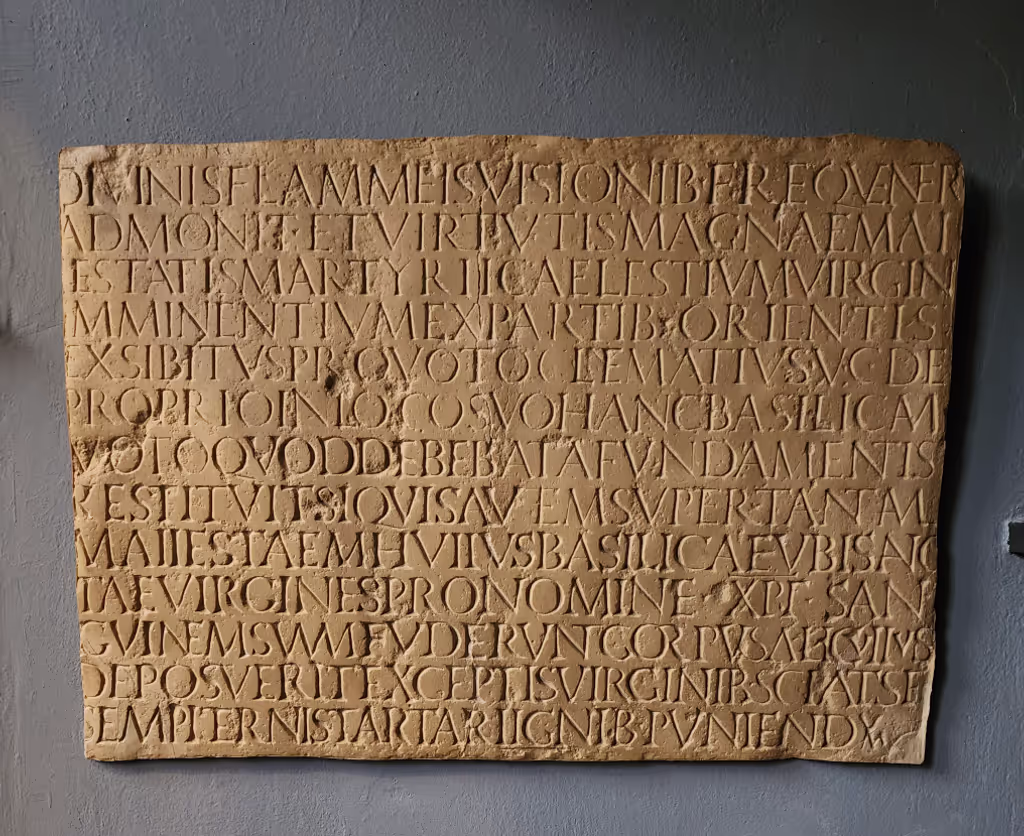 DIVINISFLAMMEISVISIONIBFREQVENER
ADMONIT·ETVIRTIVTISMAGNAEMAI
ESTATISMARTYRIICAELESTIVMVIRGIN
MMINENTIVMEXPARTIB·ORIENTIS
EXSIBITVSPROVOTOCLEMATIVSVCDE
PROPRIOINLOCOSVOHANCBASILICAM
VOTOQVODDEBEBATAFVNDAMENTIS
RESTITVITSIQVISAVTEMSVPERTANTAM
MAIIESTAEMHVIIVSBASILICAEVBISANC
TAEVIRGINESPRONOMINE·XPI·SAN
GVINEMSVVMFVDERVNTCORPVSALICVIIVS
DEPOSVERITEXCEPTISVIRGINIBSCIATSE
SEMPITERNISTARTARIIGNIB·PVNIENDV